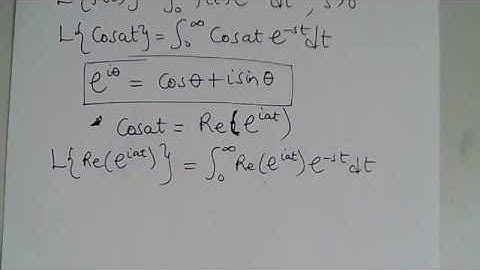 L{Cosat} = ∫₀^∞ Cosat e^-st dt
e^iθ = Cosθ + i sinθ
Cosat = Re(e^iat)
L{Re(e^iat)} = ∫₀^∞ Re(e^iat) e^-st dt